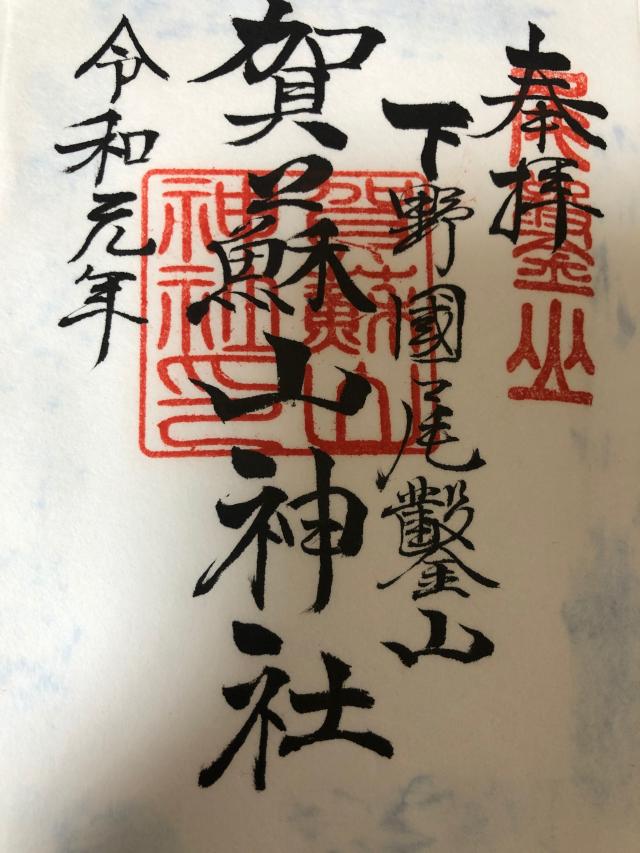 奉拝
尾鑿山
下野國尾鑿山
賀蘇山神社
賀蘇山
神社印
令和元年